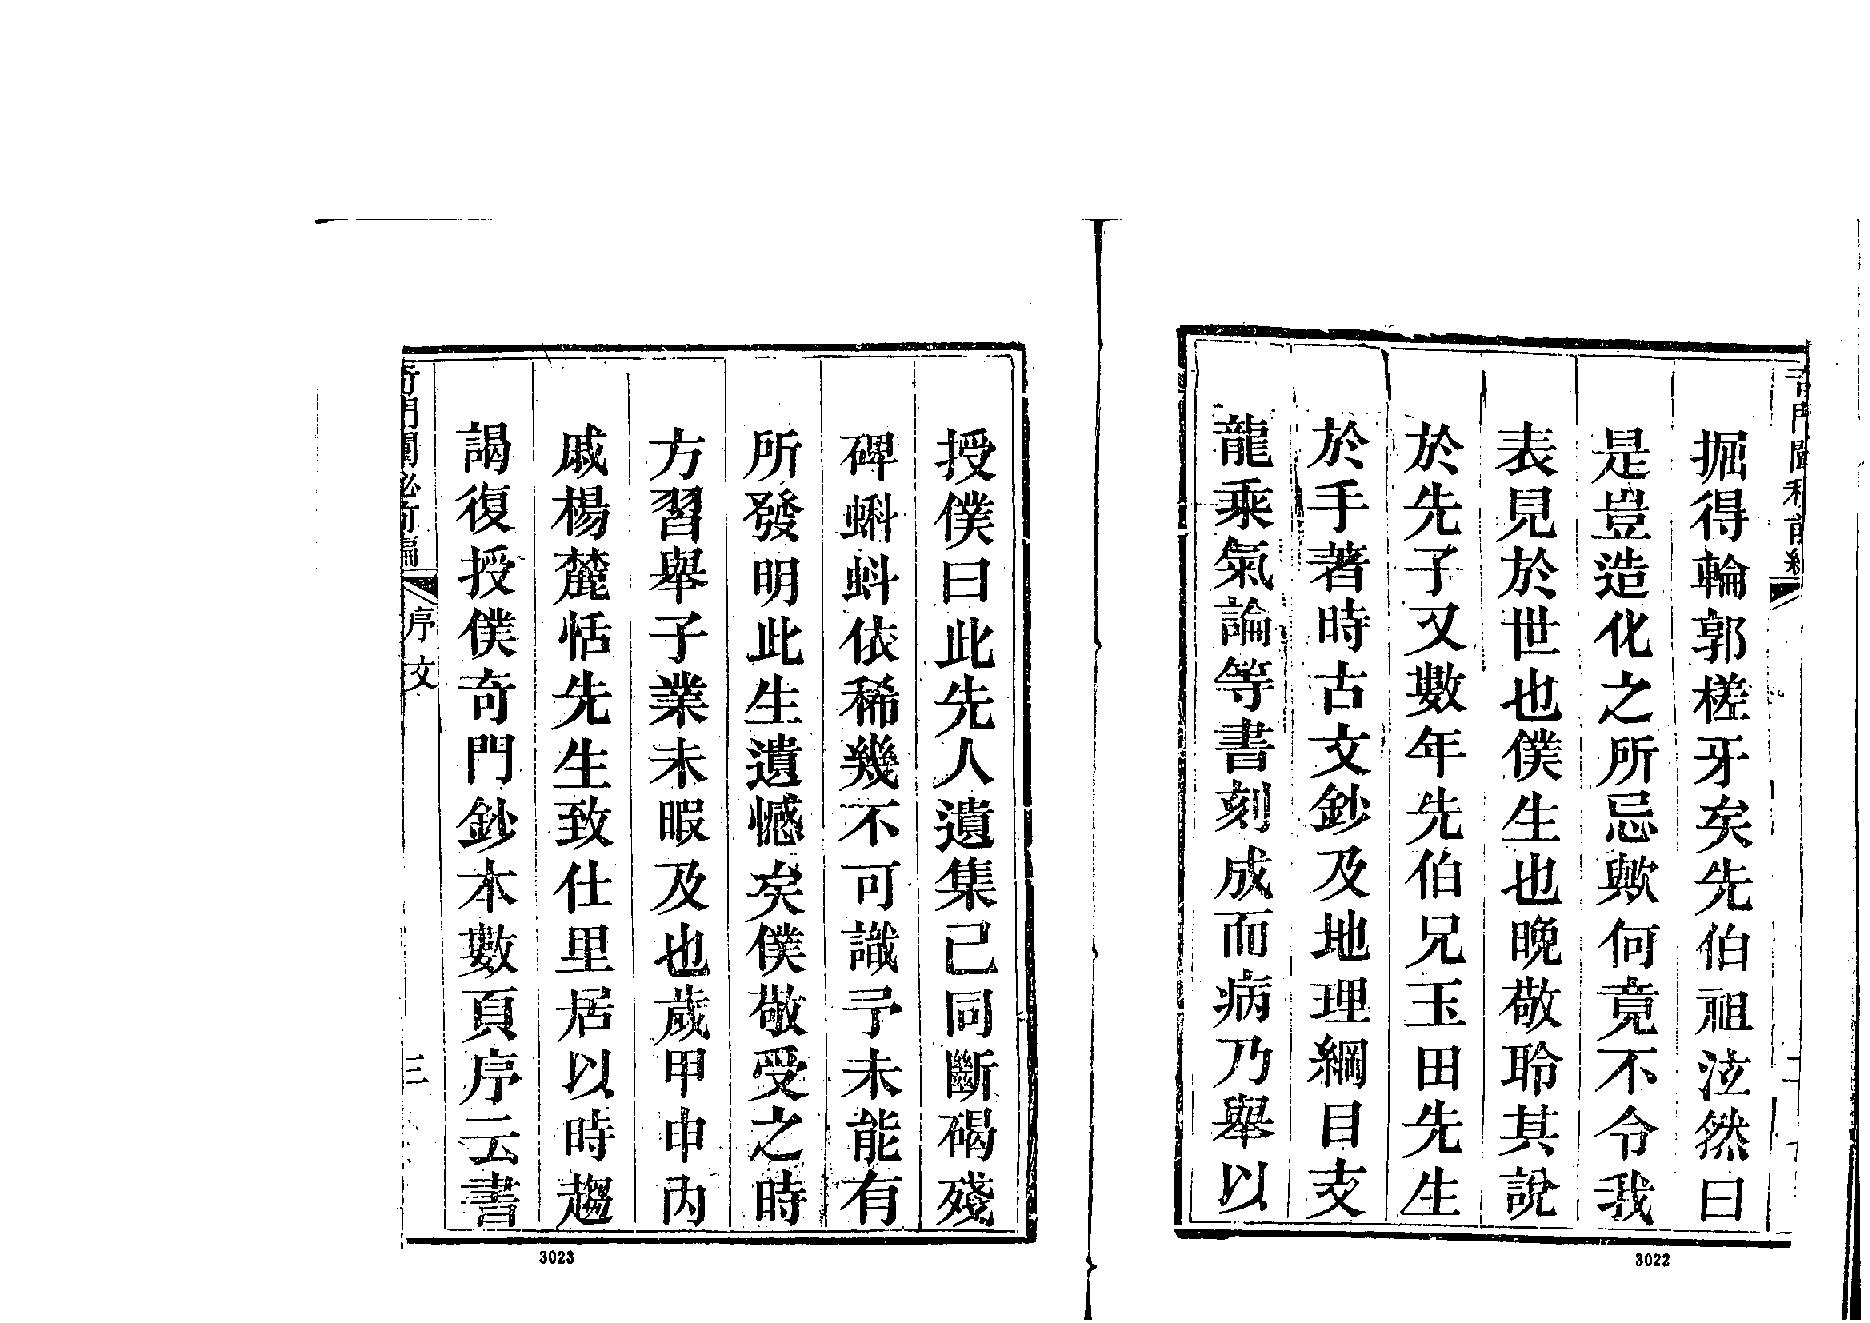 掘得輪郭槎牙矣先伯祖泫然曰
是豈造化之所忌歟何竟不令我
表見於世也僕生也晚敬聆其說
於先子又數年先伯兄玉田先生
於手著時古文鈔及地理綱目支
龍乘氣論等書刻成而病乃舉以
3022
授僕曰此先人遺集己同斷碣殘
碑蝌蚪依稀幾不可識予未能有
所發明此生遺憾矣僕敬受之時
方習舉子業未暇及也歲甲申內
戚楊麓恬先生致仕里居以時趨
謁復授僕奇門鈔本數頁序云書
序文
三
3023